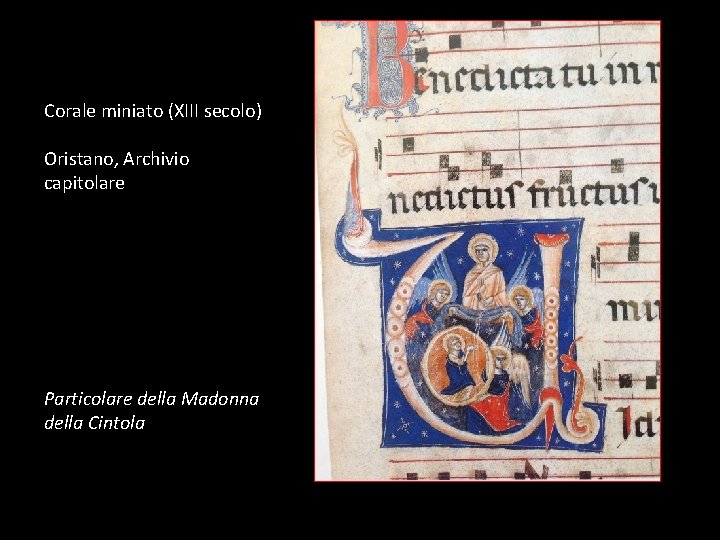 Corale miniato (XIII secolo)
Oristano, Archivio
capitolare
Particolare della Madonna
della Cintola
Benedicta tu in
nedictus fructus